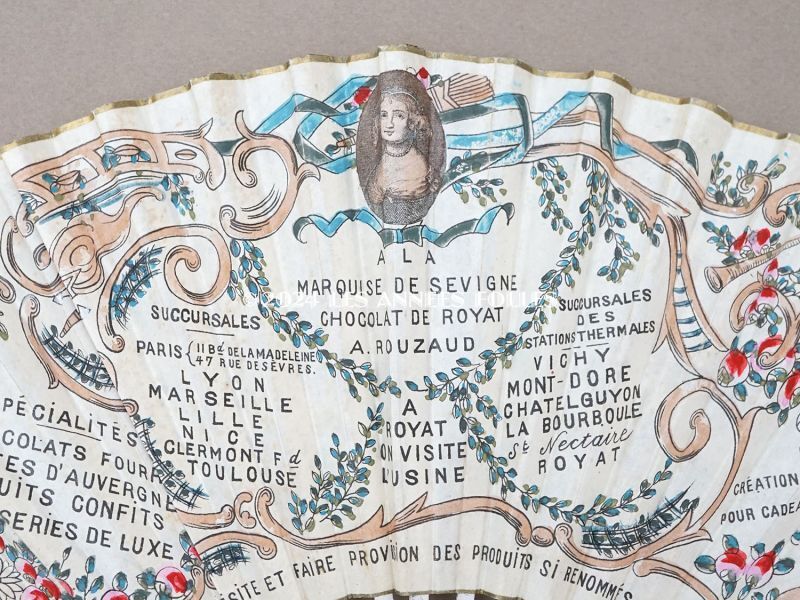 A LA
MARQUISE DE SEVIGNE
CHOCOLAT DE ROYAT
A. ROUZAUD
SUCCURSALES
PARIS { 11 Bd DE LA MADELEINE
47 RUE DE SÈVRES.
LYON
MARSEILLE
LILLE
NICE
CLERMONT Fd
TOULOUSE
A
ROYAT
ON VISITE
L'USINE
SUCCURSALES
DES
STATIONS THERMALES
VICHY
MONT-DORE
CHATELGUYON
LA BOURBOULE
St Nectaire
ROYAT
PÉCIALITÉS
COLATS FOURR
TES D'AUVERGNE
UITS CONFITS
SERIES DE LUXE
CRÉATION
POUR CADEA
SITE ET FAIRE PROVISION DES PRODUITS SI RENOMMÉS
© 2024 LES ANNÉES FOLLES